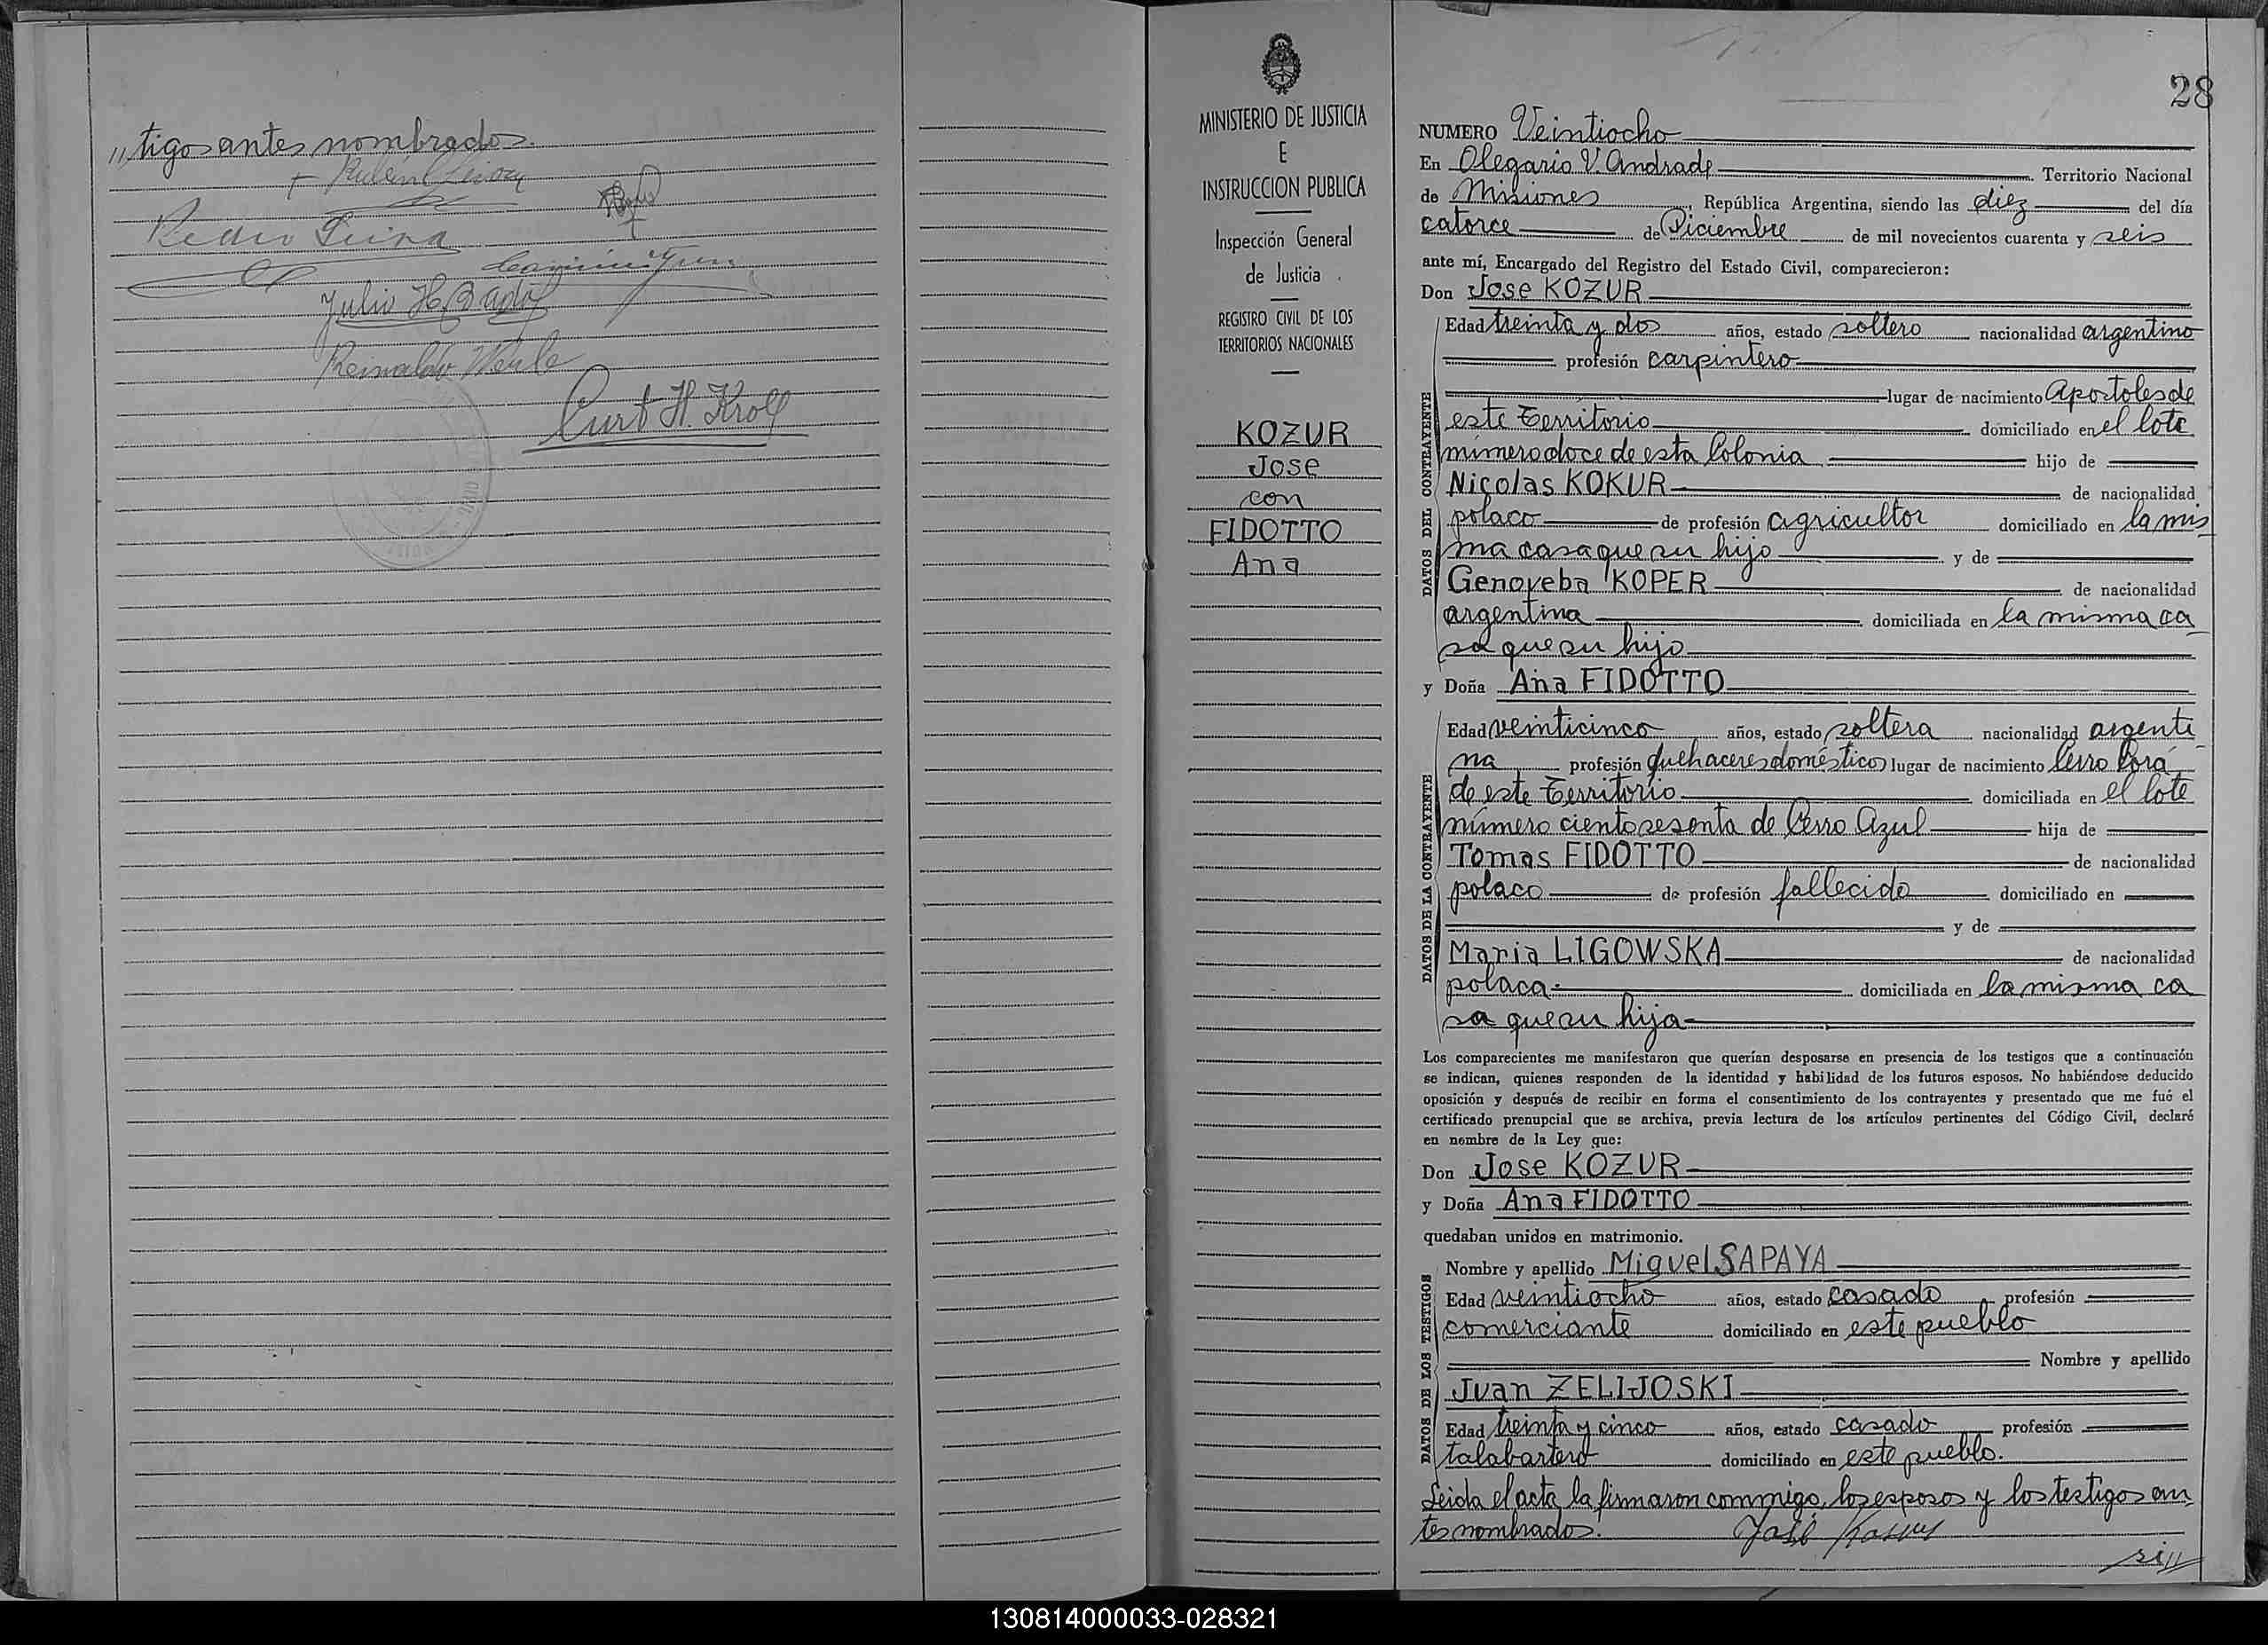 " tigos antes nombrados.
Julio H.
Reinaldo Werle
Curt H. Kroll
MINISTERIO DE JUSTICIA
E
INSTRUCCION PUBLICA
Inspección General
de Justicia
REGISTRO CIVIL DE LOS
TERRITORIOS NACIONALES
KOZUR
Jose
con
FIDOTTO
Ana
28
NUMERO Veintiocho
En Olegario V. Andrade Territorio Nacional
de Misiones, República Argentina, siendo las diez del día
catorce de Diciembre de mil novecientos cuarenta y seis
ante mí, Encargado del Registro del Estado Civil, comparecieron:
Don Jose KOZUR
DATOS DEL CONTRAYENTE
Edad treinta y dos años, estado soltero nacionalidad argentino
profesión carpintero
lugar de nacimiento Apostoles de
este Territorio domiciliado en el lote
número doce de esta Colonia hijo de
Nicolas KOKUR de nacionalidad
polaco de profesión agricultor domiciliado en la mis
ma casa que su hijo y de
Genoveba KOPER de nacionalidad
argentina domiciliada en la misma ca
sa que su hijo
y Doña Ana FIDOTTO
DATOS DE LA CONTRAYENTE
Edad veinticinco años, estado soltera nacionalidad argenti
na profesión quehaceres domésticos lugar de nacimiento Cerro Corá
de este Territorio domiciliada en el lote
número ciento sesenta de Cerro Azul hija de
Tomas FIDOTTO de nacionalidad
polaco de profesión fallecido domiciliado en
y de
Maria LIGOWSKA de nacionalidad
polaca domiciliada en la misma ca
sa que su hija
Los comparecientes me manifestaron que querían desposarse en presencia de los testigos que a continuación
se indican, quienes responden de la identidad y habilidad de los futuros esposos. No habiéndose deducido
oposición y después de recibir en forma el consentimiento de los contrayentes y presentado que me fué el
certificado prenupcial que se archiva, previa lectura de los artículos pertinentes del Código Civil, declaré
en nombre de la Ley que:
Don Jose KOZUR
y Doña Ana FIDOTTO
quedaban unidos en matrimonio.
DATOS DE LOS TESTIGOS
Nombre y apellido Miguel SAPAYA
Edad veintiocho años, estado casado profesión
comerciante domiciliado en este pueblo
Nombre y apellido
Juan ZELIJOSKI
Edad treinta y cinco años, estado casado profesión
talabartero domiciliado en este pueblo.
Leida el acta, la firmaron conmigo, los esposos y los testigos an
tes nombrados. José
si//
130814000033-028321